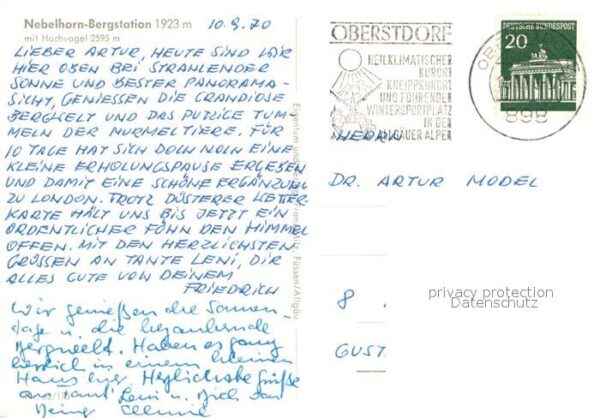 Nebelhorn-Bergstation 1923 m
mit Hochvogel 2595 m
10.9.70
LIEBER ARTUR, HEUTE SIND WIR
HIER OBEN BEI STRAHLENDER
SONNE UND BESTER PANORAMA-
SICHT, GENIESSEN DIE GRANDIOSE
BERGWELT UND DAS PUTZIGE TUM-
MELN DER MURMELTIERE. FÜR
10 TAGE HAT SICH DOCH NOCH EINE
KLEINE ERHOLUNGSPAUSE ERGEBEN
UND DAMIT EINE SCHÖNE ERGÄNZUNG
ZU LONDON. TROTZ DÜSTERER WETTER-
KARTE HÄLT UNS BIS JETZT EIN
ORDENTLICHER FÖHN DEN HIMMEL
OFFEN. MIT DEN HERZLICHSTEN
GRÜSSEN AN TANTE LENI, DIR
ALLES GUTE VON DEINEM
FRIEDRICH
Wir genießen die Sonnen-
tage u. die bezaubernde
Bergwelt. Haben es ganz
herrlich in einem kleinen
Haus hier Herzlichste Grüße
an Leni u. Dich von
Deiner
Eigentum und
Füssen/Allgäu
OBERSTDORF
HEILKLIMATISCHER
KURORT
KNEIPPKURORT
UND FÜHRENDER
WINTERSPORTPLATZ
IN DEN
ALLGÄUER ALPEN
DEUTSCHE BUNDESPOST
20
898
HERRN
DR. ARTUR MODEL
8
GUST
privacy protection
Datenschutz